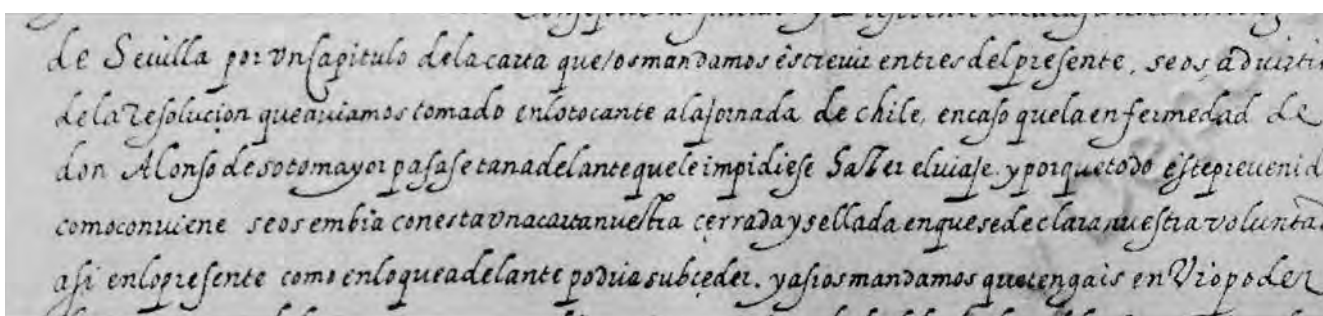 de Seuilla por vn capitulo dela carta que os mandamos escreuir en tres del presente, se os aduirti
dela Resolucion que auiamos tomado enlo tocante ala jornada de chile, en caso que la enfermedad de
don Alonso de sotomayor pasase tan adelante que le impidiese hazer el uiaje. y porque todo este preuenid
como conuiene se os embia con esta vna carta nuestra çerrada y sellada en que se declara nuestra volunta
asi enlo presente como enlo que adelante podria subçeder. y asi os mandamos que tengais en Vro poder